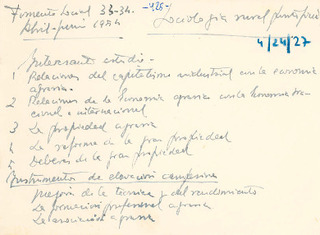 Fomento Social 33-34. -425-/
Abril-junio 1954
Sociologia rural
4/24/27
Interesante estudio.-
1 Relaciones del capitalismo industrial con la economia
agraria.
2 Relaciones de la Economia agraria con la Economia na-
cional e internacional
3 La propiedad agraria
4 La reforma de la gran propiedad
5 Deberes de la gran propiedad
Instrumentos de elevación campesina
mejora de la tecnica y del rendimiento
La formación profesional agraria
La asociación agraria